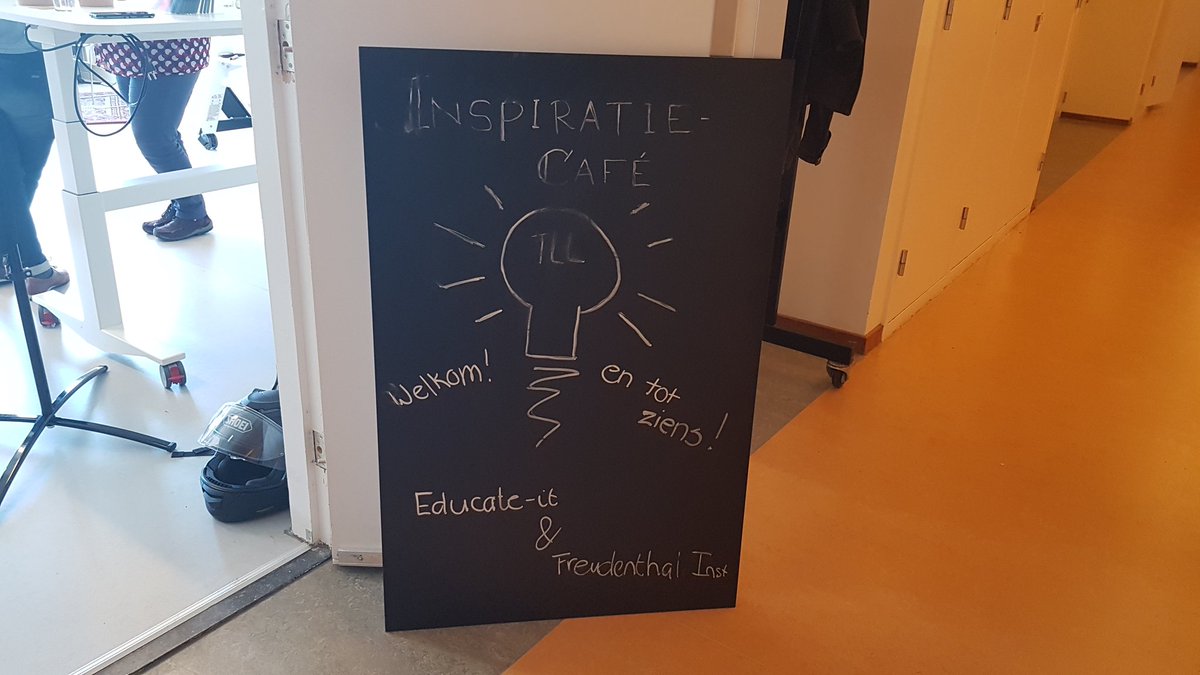 INSPIRATIE-
CAFÉ
TLL
Welkom!
en tot
ziens!
Educate-it
&
Freudenthal Inst
SHOEI